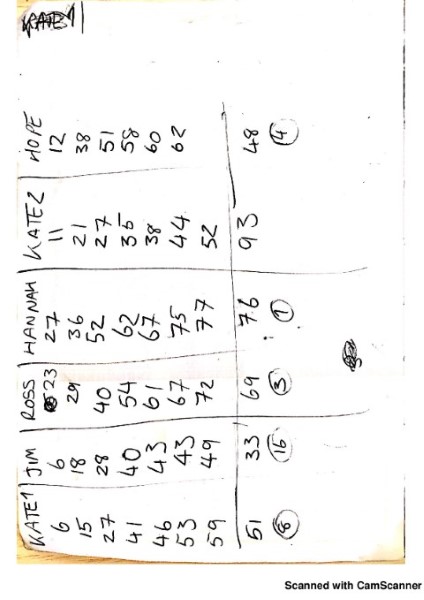 KATE1 JIM ROSS HANNAH KATE2 HOPE
6 6 23 27 11 12
15 18 29 36 21 38
27 28 40 52 27 51
41 40 54 62 35 58
46 43 61 67 38 60
53 43 67 75 44 62
59 49 72 77 52
51 33 69 76 93 48
8 15 3 1 4
Scanned with CamScanner